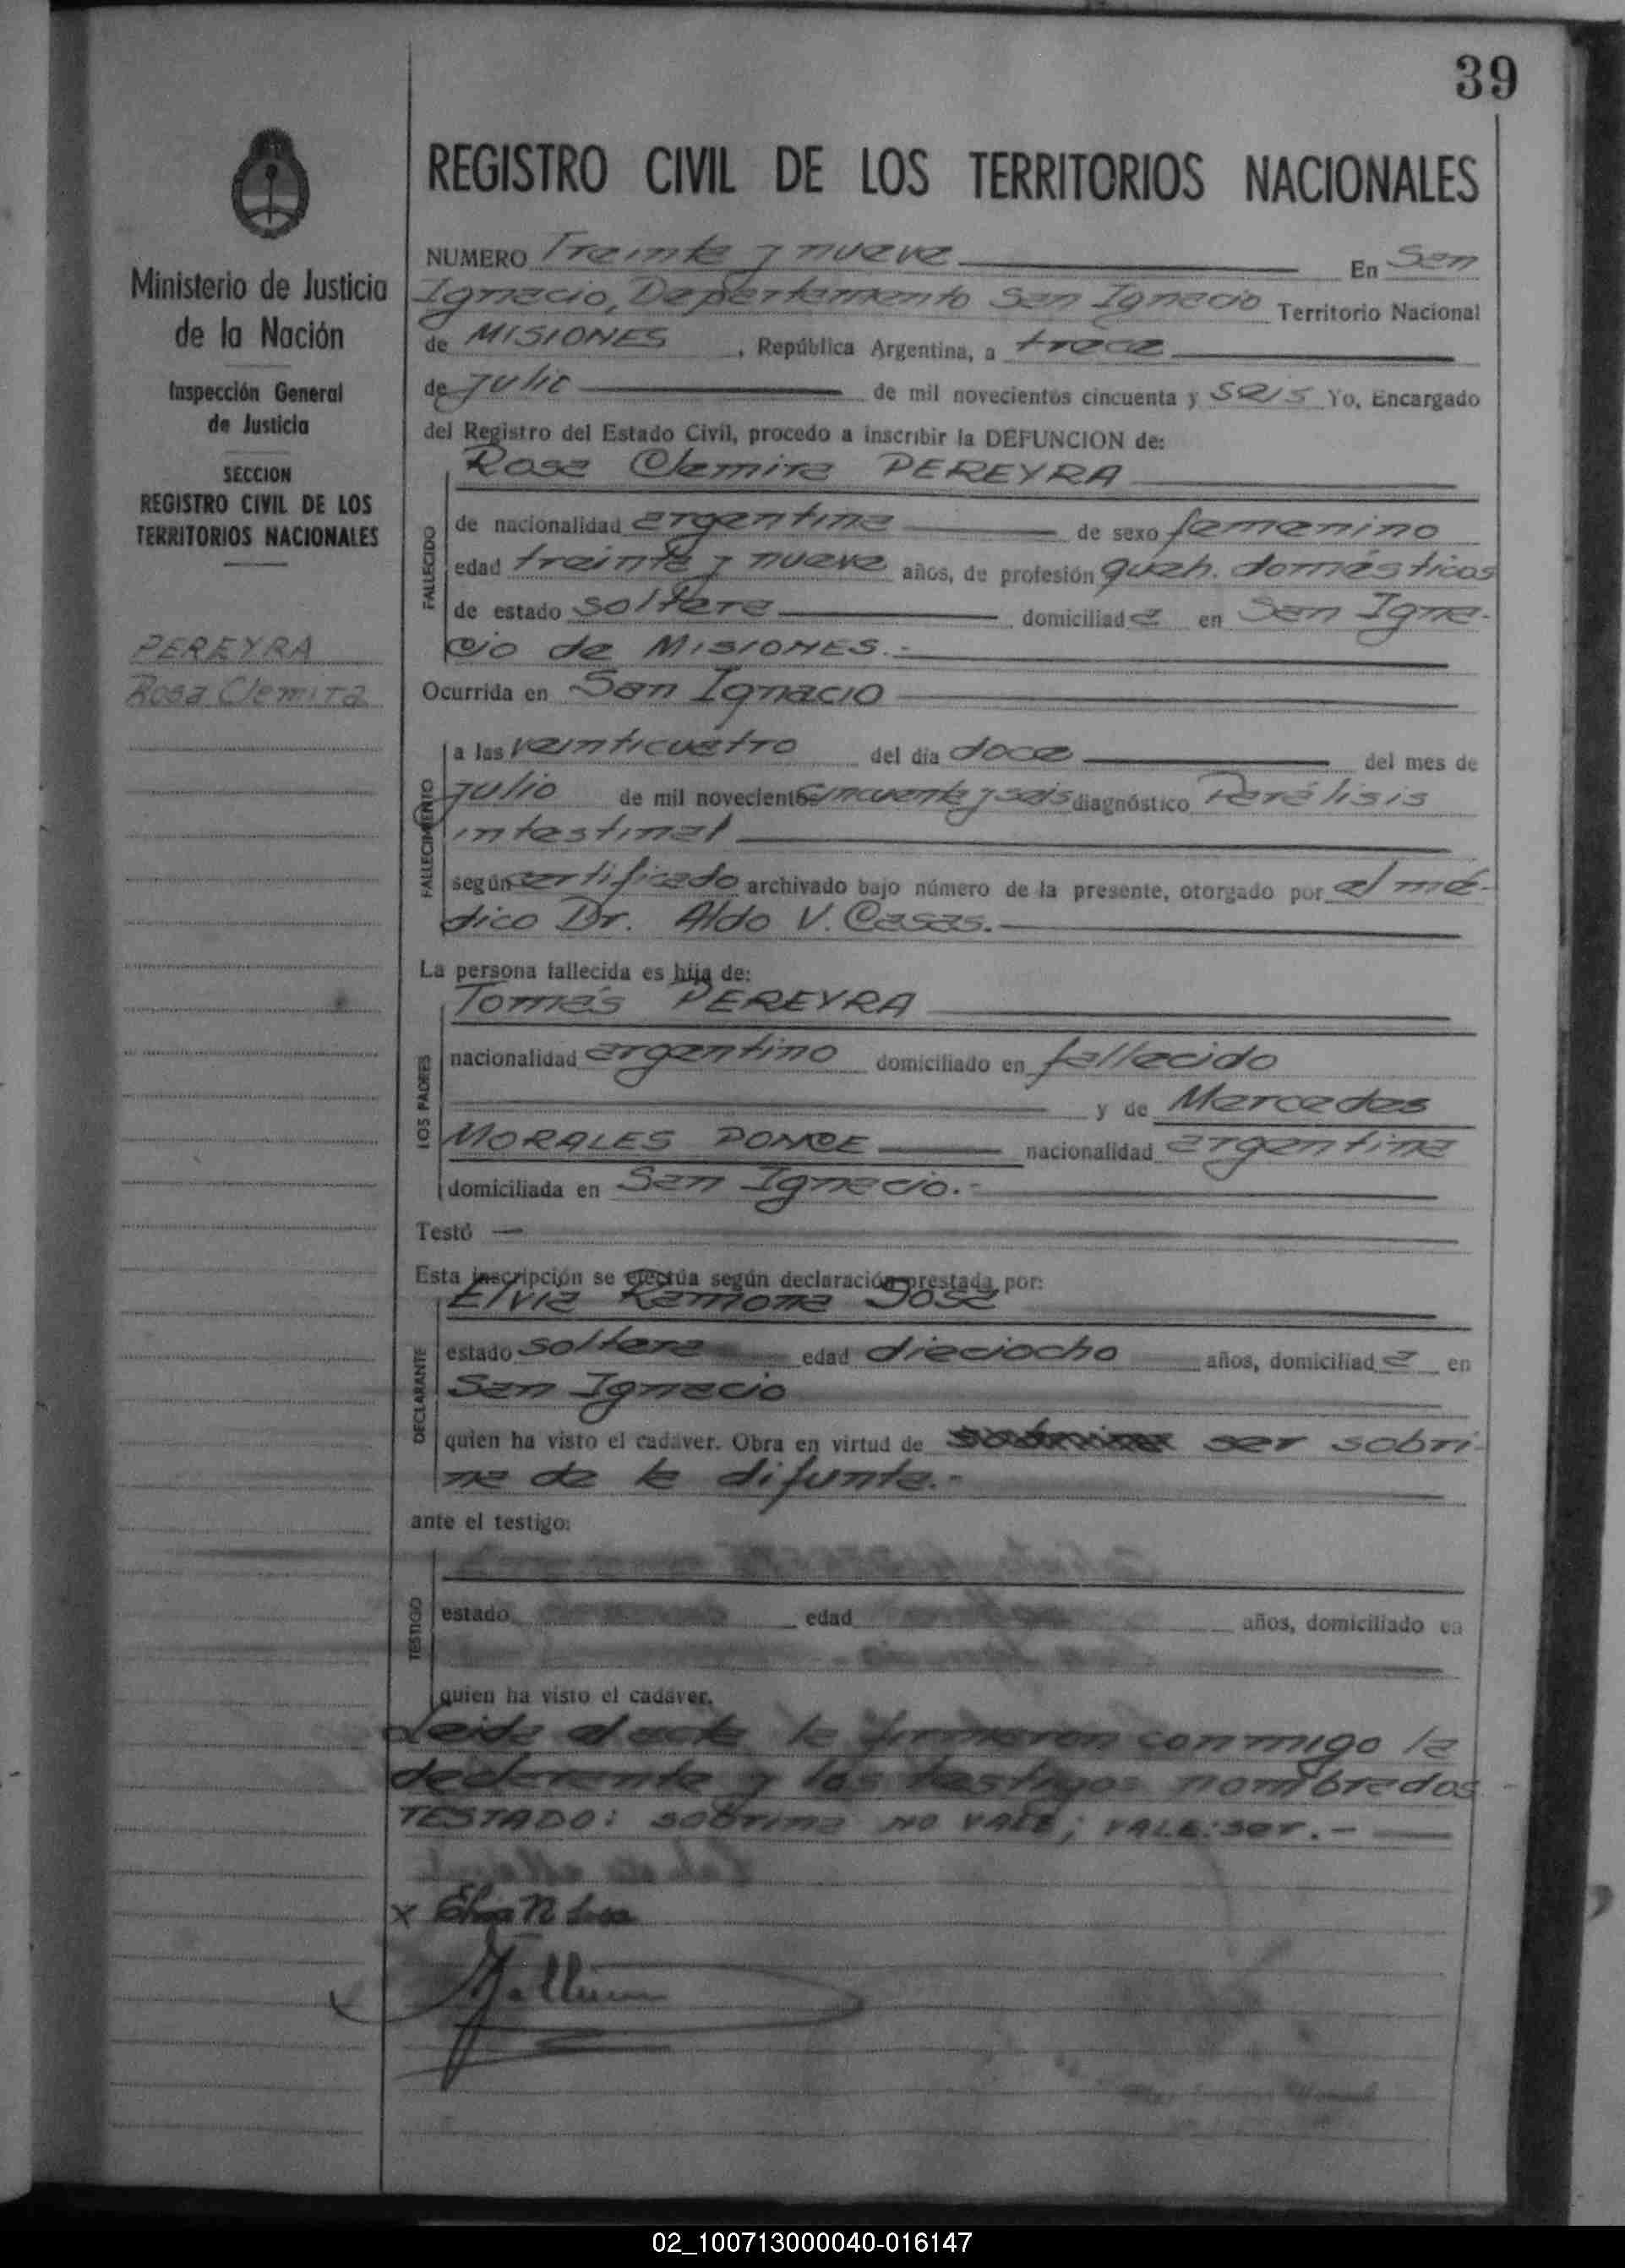 39
REGISTRO CIVIL DE LOS TERRITORIOS NACIONALES
Ministerio de Justicia
de la Nación
Inspección General
de Justicia
SECCION
REGISTRO CIVIL DE LOS
TERRITORIOS NACIONALES
PEREYRA
Rosa Clemira
NUMERO Treinta y nueve En San
Ignacio, Departamento San Ignacio Territorio Nacional
de MISIONES, República Argentina, a trece
de julio de mil novecientos cincuenta y seis Yo, Encargado
del Registro del Estado Civil, procedo a inscribir la DEFUNCION de:
FALLECIDO
Rosa Clemira PEREYRA
de nacionalidad argentina de sexo femenino
edad treinta y nueve años, de profesión queh. domésticos
de estado soltera domiciliada en San Igna-
cio de MISIONES.-
Ocurrida en San Ignacio
FALLECIMIENTO
a las veinticuatro del día doce del mes de
julio de mil novecientos cincuenta y seis diagnóstico Parálisis
intestinal
según certificado archivado bajo número de la presente, otorgado por el mé-
dico Dr. Aldo V. Casas.-
La persona fallecida es hija de:
LOS PADRES
Tomás PEREYRA
nacionalidad argentino domiciliado en fallecido
y de Mercedes
MORALES PONCE nacionalidad argentina
domiciliada en San Ignacio.-
Testó —
Esta inscripción se efectúa según declaración prestada por:
DECLARANTE
Elvia Ramona Sosa
estado soltera edad dieciocho años, domiciliada en
San Ignacio
quien ha visto el cadáver. Obra en virtud de sobrina ser sobri-
na de la difunta.-
ante el testigo:
TESTIGO
estado edad años, domiciliado en
quien ha visto el cadáver.
Leida el acta la firmaron conmigo la
declarante y los testigos nombrados
TESTADO: sobrina NO VALE; VALE: ser.-
x
02_100713000040-016147